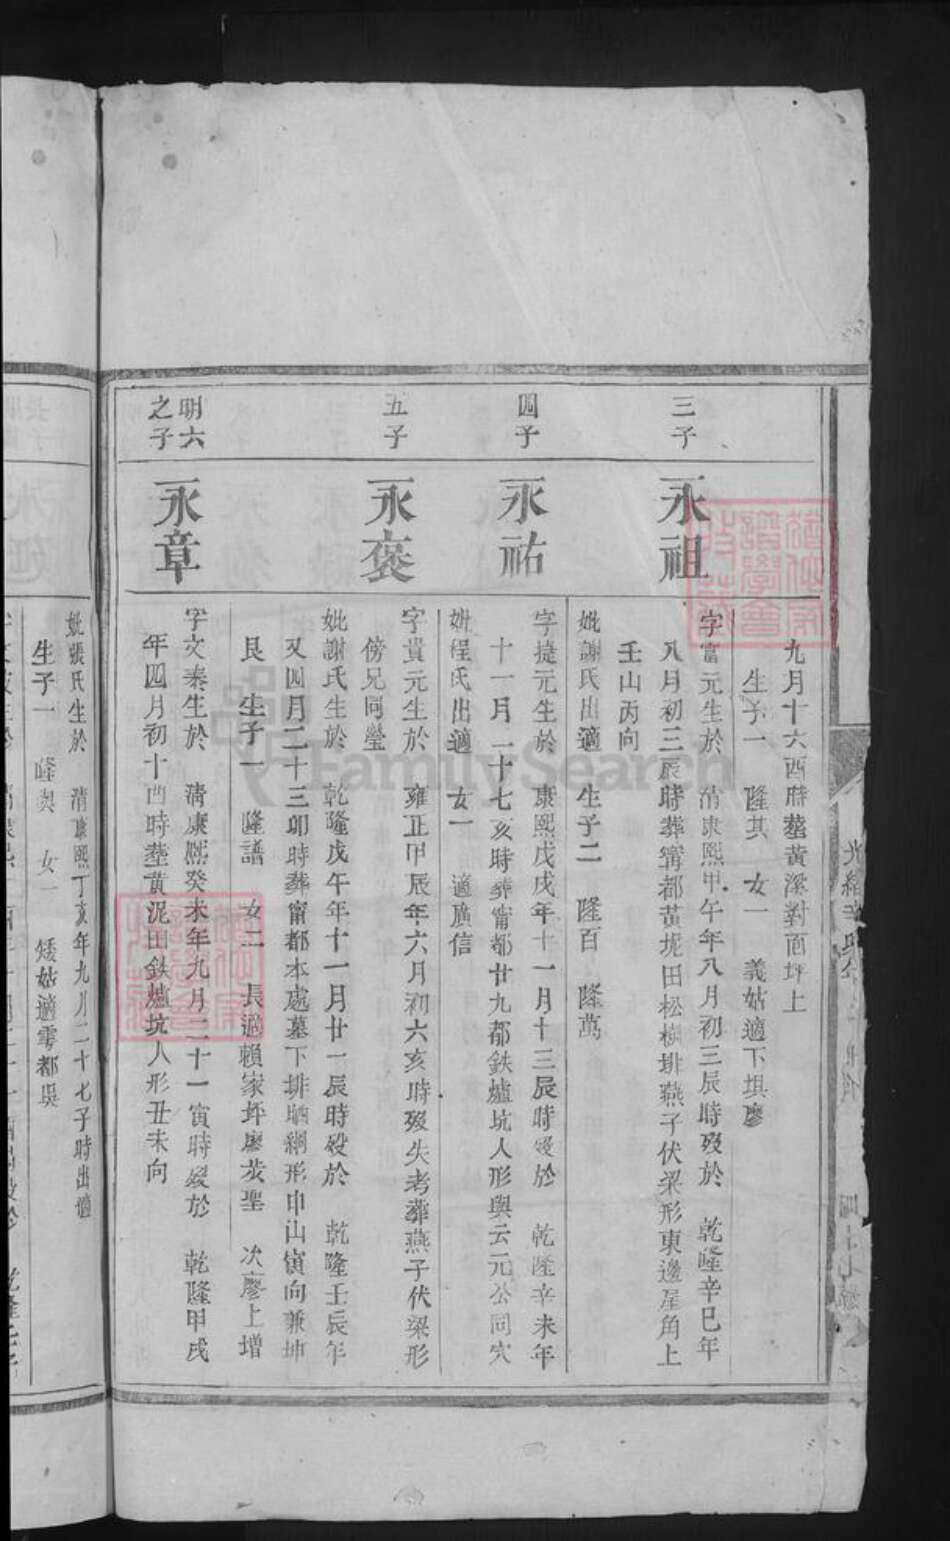 九月十六酉時塟黃溪對面坪上
生子一 隆其 女一 義姑適下埧廖
三子
永祖
字富元生於 清康熙甲午年八月初三辰時歿於 乾隆辛巳年
八月初三辰時葬甯都黃坭田松樹排燕子伏梁形東邊屋角上
壬山丙向
妣謝氏出適 生子二 隆百 隆萬
四子
永祐
字捷元生於 康熙戊戌年十一月十三辰時歿於 乾隆辛未年
十一月二十七亥時葬甯都廿九都鉄爐坑人形與云元公同穴
妣程氏出適 女一 適廣信
五子
永褒
字貴元生於 雍正甲辰年六月初六亥時歿失考葬燕子伏梁形
傍兄同瑩
妣謝氏生於 乾隆戊午年十一月廿一辰時歿於 乾隆壬辰年
又四月二十三卯時葬甯都本處墓下排晒網形申山寅向兼坤
艮 生子一 隆譜 女二 長適賴家坪廖 聖 次廖上增
明六
之子
永章
字文泰生於 清康熙癸未年九月二十一寅時歿於 乾隆甲戌
年四月初十酉時塟黃泥田鉄爐坑人形丑未向
妣張氏生於 清康熙丁亥年九月二十七子時出適
生子一 隆契 女一 矮姑適雩都吳
FamilySearch